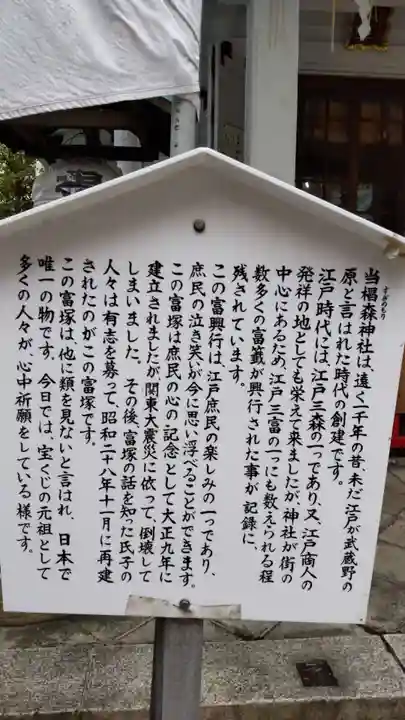 すぎのもり
当椙森神社は、遠く一千年の昔、未だ江戸が武蔵野の
原と言はれた時代の創建です。
江戸時代には、江戸三森の一つであり、又、江戸商人の
発祥の地としても栄えて来ましたが、神社が街の
中心にあるため、江戸三富の一つにも数えられる程
数多くの富籤が興行された事が記録に、
残されています。
この富興行は、江戸庶民の楽しみの一つであり、
庶民の泣き笑いが今に思い浮べることができます。
この富塚は庶民の心の記念として大正九年に
建立されましたが関東大震災に依って、倒壊して
しまいました。その後、富塚の話を知った氏子の
人々は有志を募って、昭和二十八年十一月に再建
されたのがこの富塚です。
この富塚は、他に類を見ないと言はれ、日本で
唯一の物です。今日では、宝くじの元祖として
多くの人々が、心中祈願をしている様です。